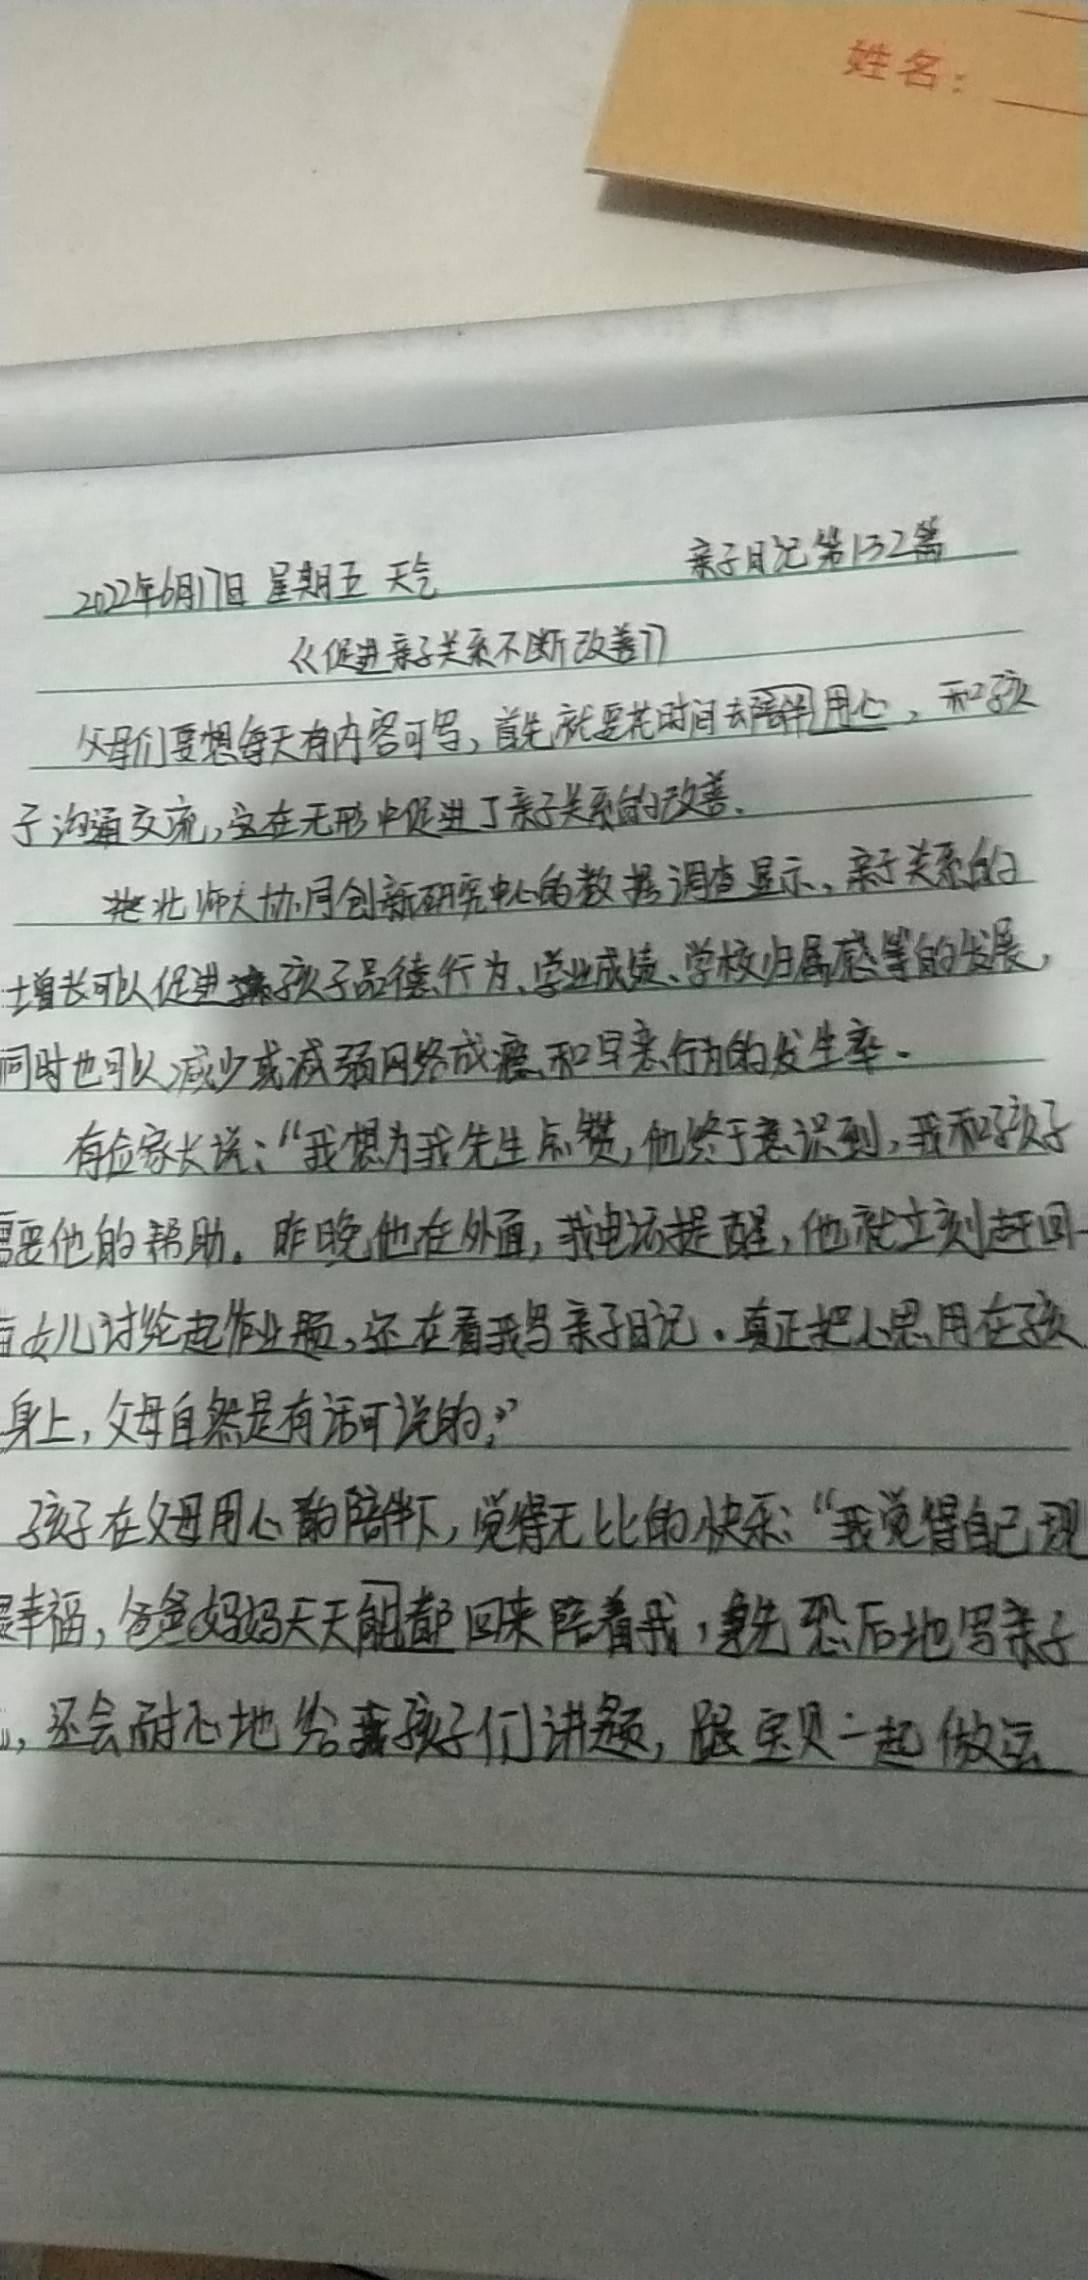 姓名：
2022年6月17日 星期五 天气 亲子日记第132篇
《促进亲子关系不断改善》
父母们要想每天有内容可写，首先就要花时间去陪伴用心，和孩
子沟通交流，这在无形中促进了亲子关系的改善.
据北师大协同创新研究中心的数据调查显示，亲子关系的
增长可以促进孩子品德行为、学业成绩、学校归属感等的发展，
同时也可以减少或减弱网络成瘾和早恋行为的发生率。
有位家长说：“我想为我先生点赞，他终于意识到，我和孩子
需要他的帮助。昨晚他在外面，我电话提醒，他就立刻赶回
女儿讨论起作业题，还在看我写亲子日记。真正把心思用在孩
身上，父母自然是有话可说的；”
孩子在父母用心的陪伴下，觉得无比的快乐：“我觉得自己现
幸福，爸爸妈妈天天能都回来陪着我，争先恐后地写亲子
，还会耐心地给孩子们讲题，跟宝贝一起做运